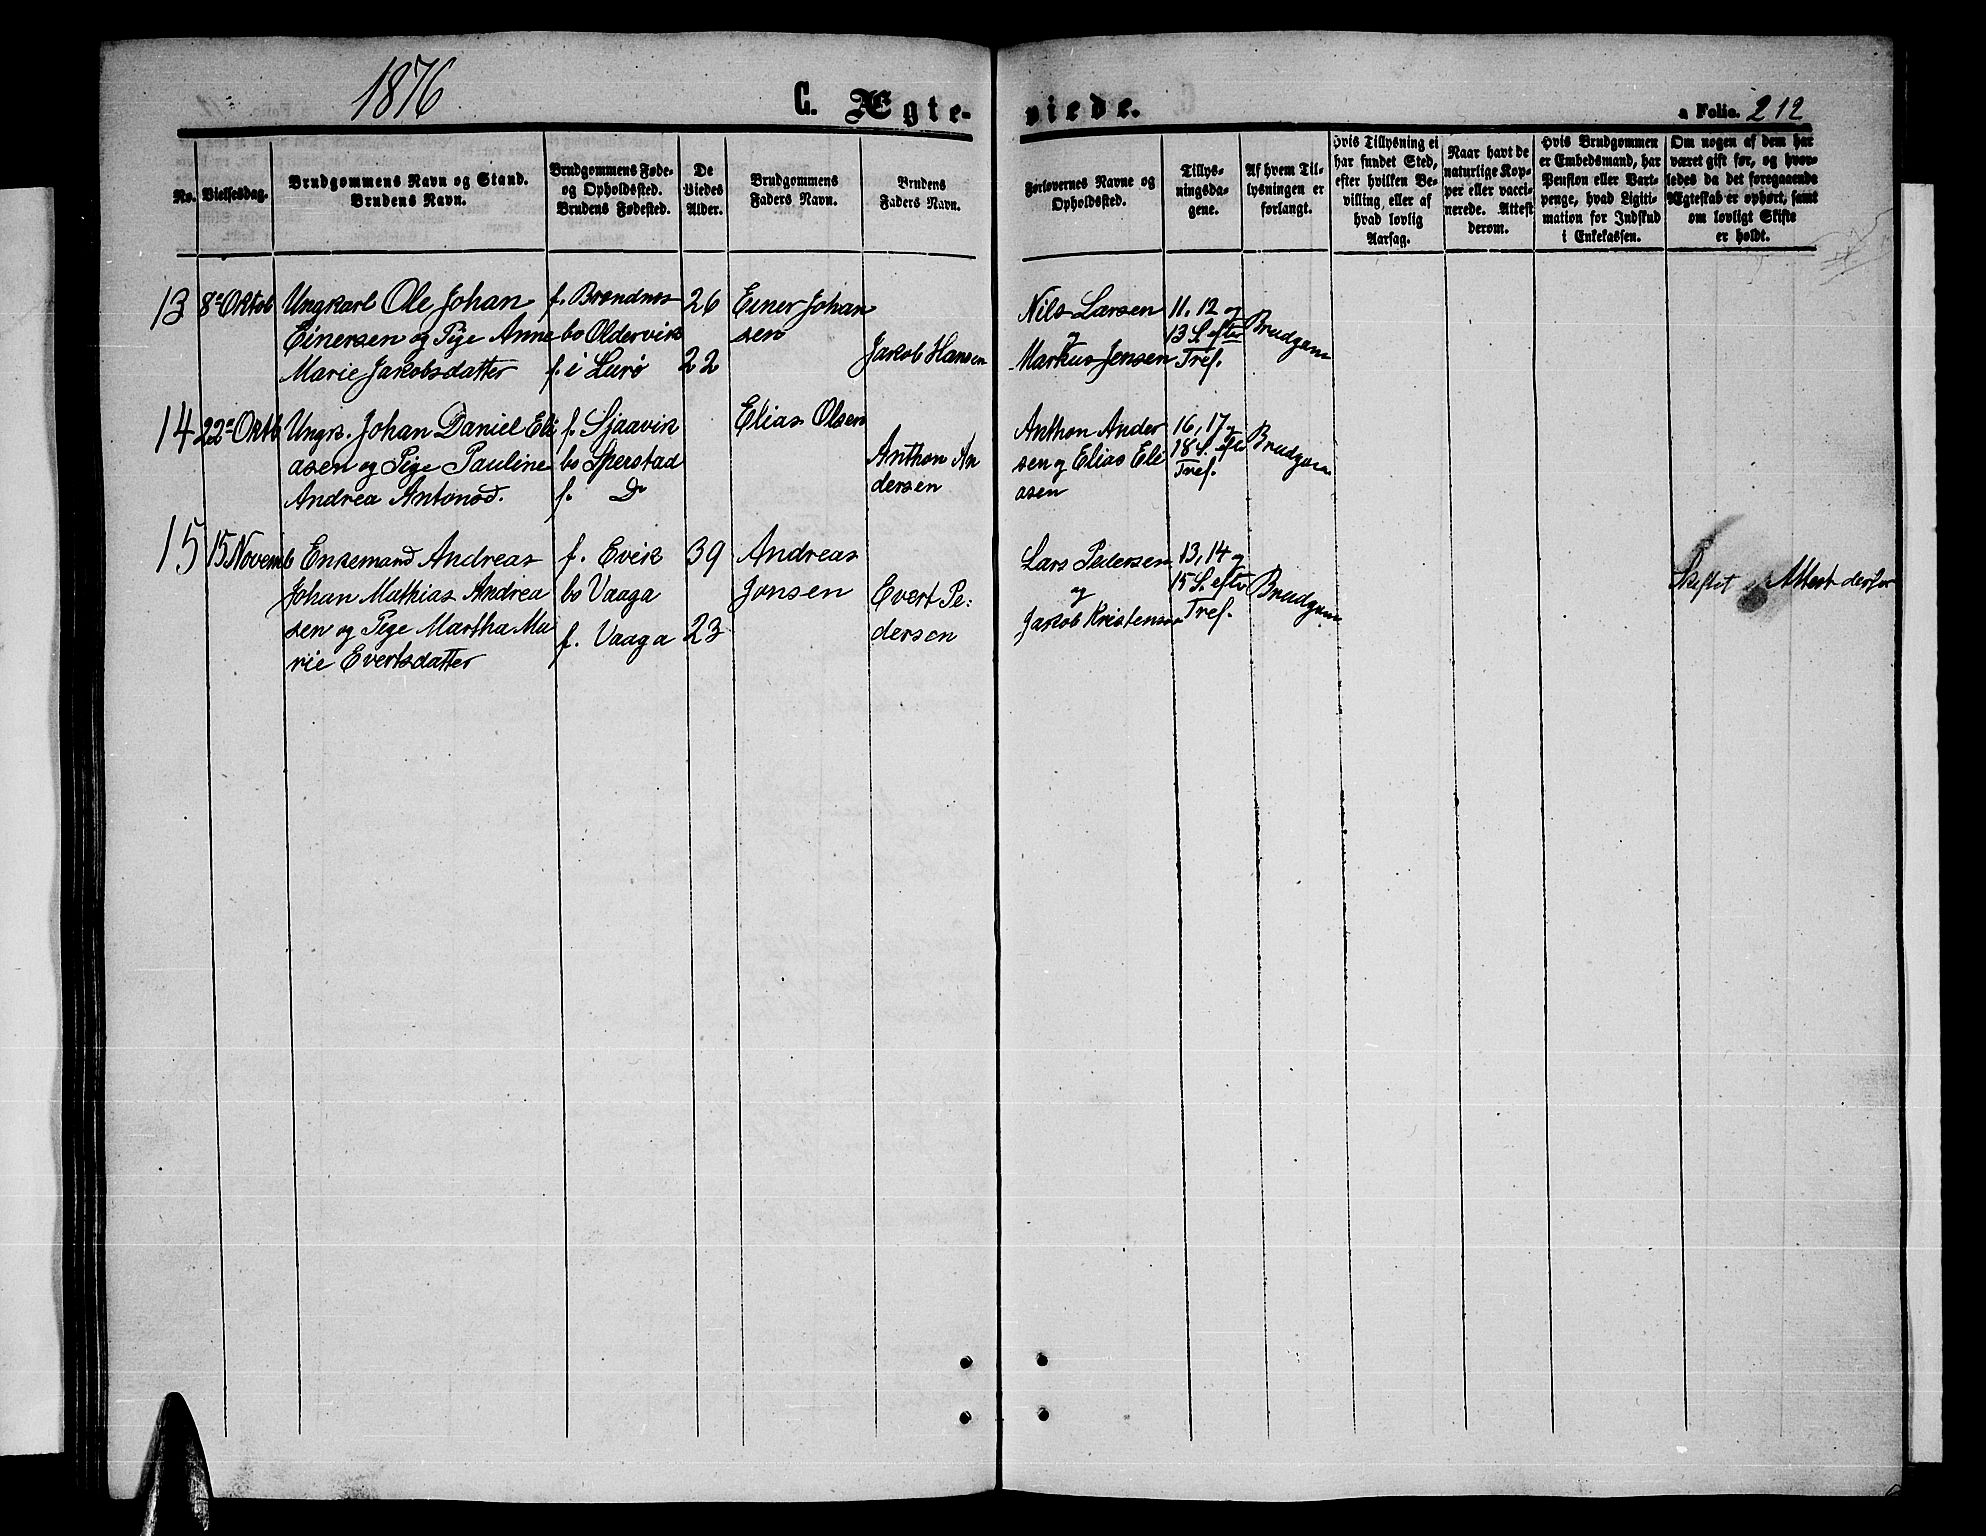 1876
C. Ægteviede.
a Folio. 212
No.
Vielsesdag.
Brudgommens Navn og Stand.
Brudens Navn.
Brudgommens Føde-
og Opholdssted.
Brudens Fødested.
De
Viedes
Alder.
Brudgommens
Faders Navn.
Brudens
Faders Navn.
Forlovernes Navne og
Opholdssted.
Tillys-
ningsda-
gene.
Af hvem Til-
lysningen er
forlangt.
Hvis Tillysning ei
har fundet Sted,
efter hvilken Be-
villing, eller af
hvad lovlig
Aarsag.
Naar havt de
naturlige Kop-
per eller vacci-
nerede. Attest
derom.
Hvis Brudgommen
er Embedsmand, har
Pension eller Vart-
penge, hvad Ligiti-
mation for Indskud
i Enkekassen.
Om nogen af dem har
været gift før, og hvor-
ledes da det foregaaende
Ægteskab er ophørt, samt
om lovligt Skifte
er holdt.
13 8de Oktob Ungkarl Ole Johan f. Brendnes 26 Einer Johan Nils Larsen 11, 12 og
Einersen og Pige Anne bo Oldervik sen og 13 S. eftr Brudgom
Marie Jakobsdatter f. i Lurö 22 Jakob Hansen Markus Jensen Tref.
14 22de Oktb Ungk. Johan Daniel Eli f. Sjaavik Elias Olsen Anthon Ander 16, 17 og
asen og Pige Pauline bo Sperstad Anthon An sen og Elias Eli 18 S. eftr Brudgom
Andrea Antonsd. f. Do dersen asen Tref.
15 15 Novemb Enkemand Andreas f. Evik 39 Andreas Lars Pedersen 13, 14 og
Johan Mathias Andrea bo Vaaga Jonsen Evert Pe: og 15 S. eftr Brudgom Skiftet Attest derfor
sen og Pige Martha Ma f. Vaaga 23 dersen Jakob Kristensen Tref.
rie Evertsdatter